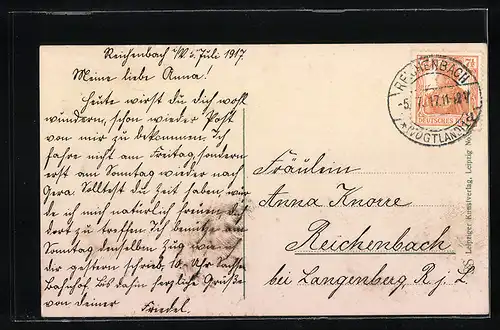 Reichenbach i/V. 5. Juli 1917.
Meine liebe Anna!
Heute wirst du dich wohl
wundern, schon wieder Post
von mir zu bekommen. Ich
fahre nicht am Freitag, sondern
erst am Sonntag wieder nach
Gera. Solltest du Zeit haben, wür-
de ich mich natürlich freuen dich
dort zu treffen. Ich benütze am
Sonntag denselben Zug wie
dir gestern schrieb, 10 Uhr
Bahnhof. Bis dahin herzliche Grüße
von deiner
Friedel.
REICHENBACH
-5. 7. 17. 11-12 V
* (VOGTLAND)
7½
DEUTSCHES REICH
Fräulein
Anna Knorre
Reichenbach
bei Langenberg R. j. L.
Leipziger Kunstverlag, Leipzig